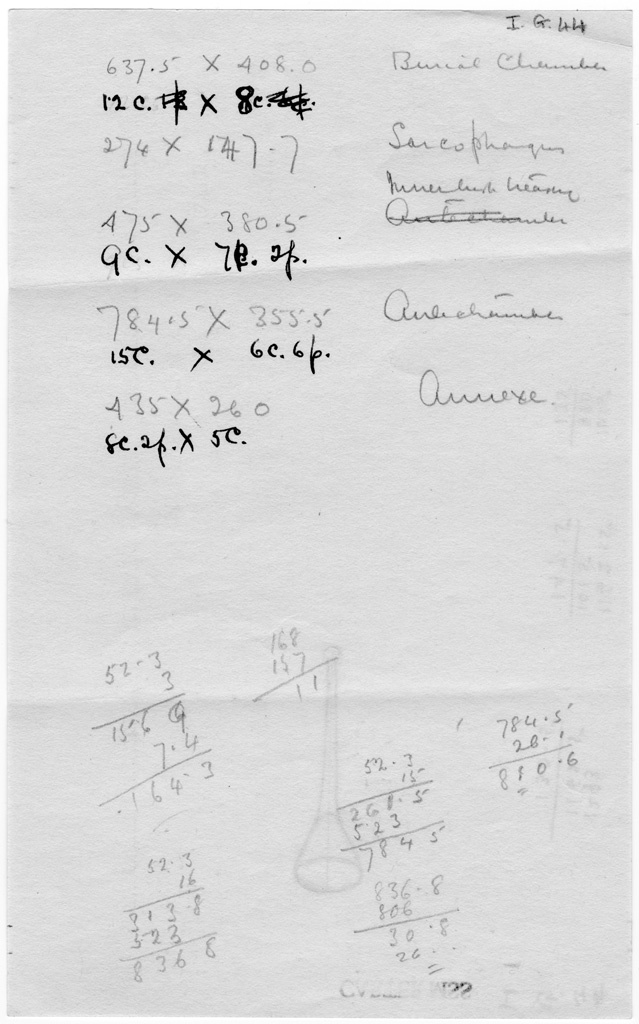 I. G. 44
637.5 X 408.0 Burial Chamber
12 c. X 8c.
274 X 147.7 Sarcophagus
Innermost treasury
475 X 380.5 Antechamber
9C. X 7C. 2p.
784.5 X 355.5 Antechamber
15C. X 6c. 6p.
435 X 260 Annexe.
8c. 2p. X 5C.
168
157
11
52.3
3
156 9
7.4
164.3
784.5
26.1
810.6
52.3
15
261.5
523
784 5
52.3
16
313.8
523
836 8
836.8
806
30.8
26
CARTER MSS